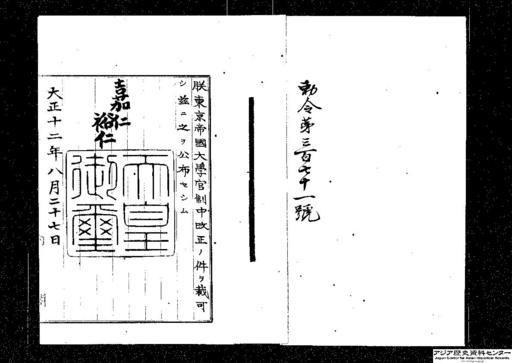 勅令第三百七十一號
朕東京帝國大學官制中改正ノ件ヲ裁可
シ茲ニ之ヲ公布セシム
嘉仁
裕仁
天皇
御璽
大正十二年八月二十七日
アジア歴史資料センター
Japan Center for Asian Historical Records